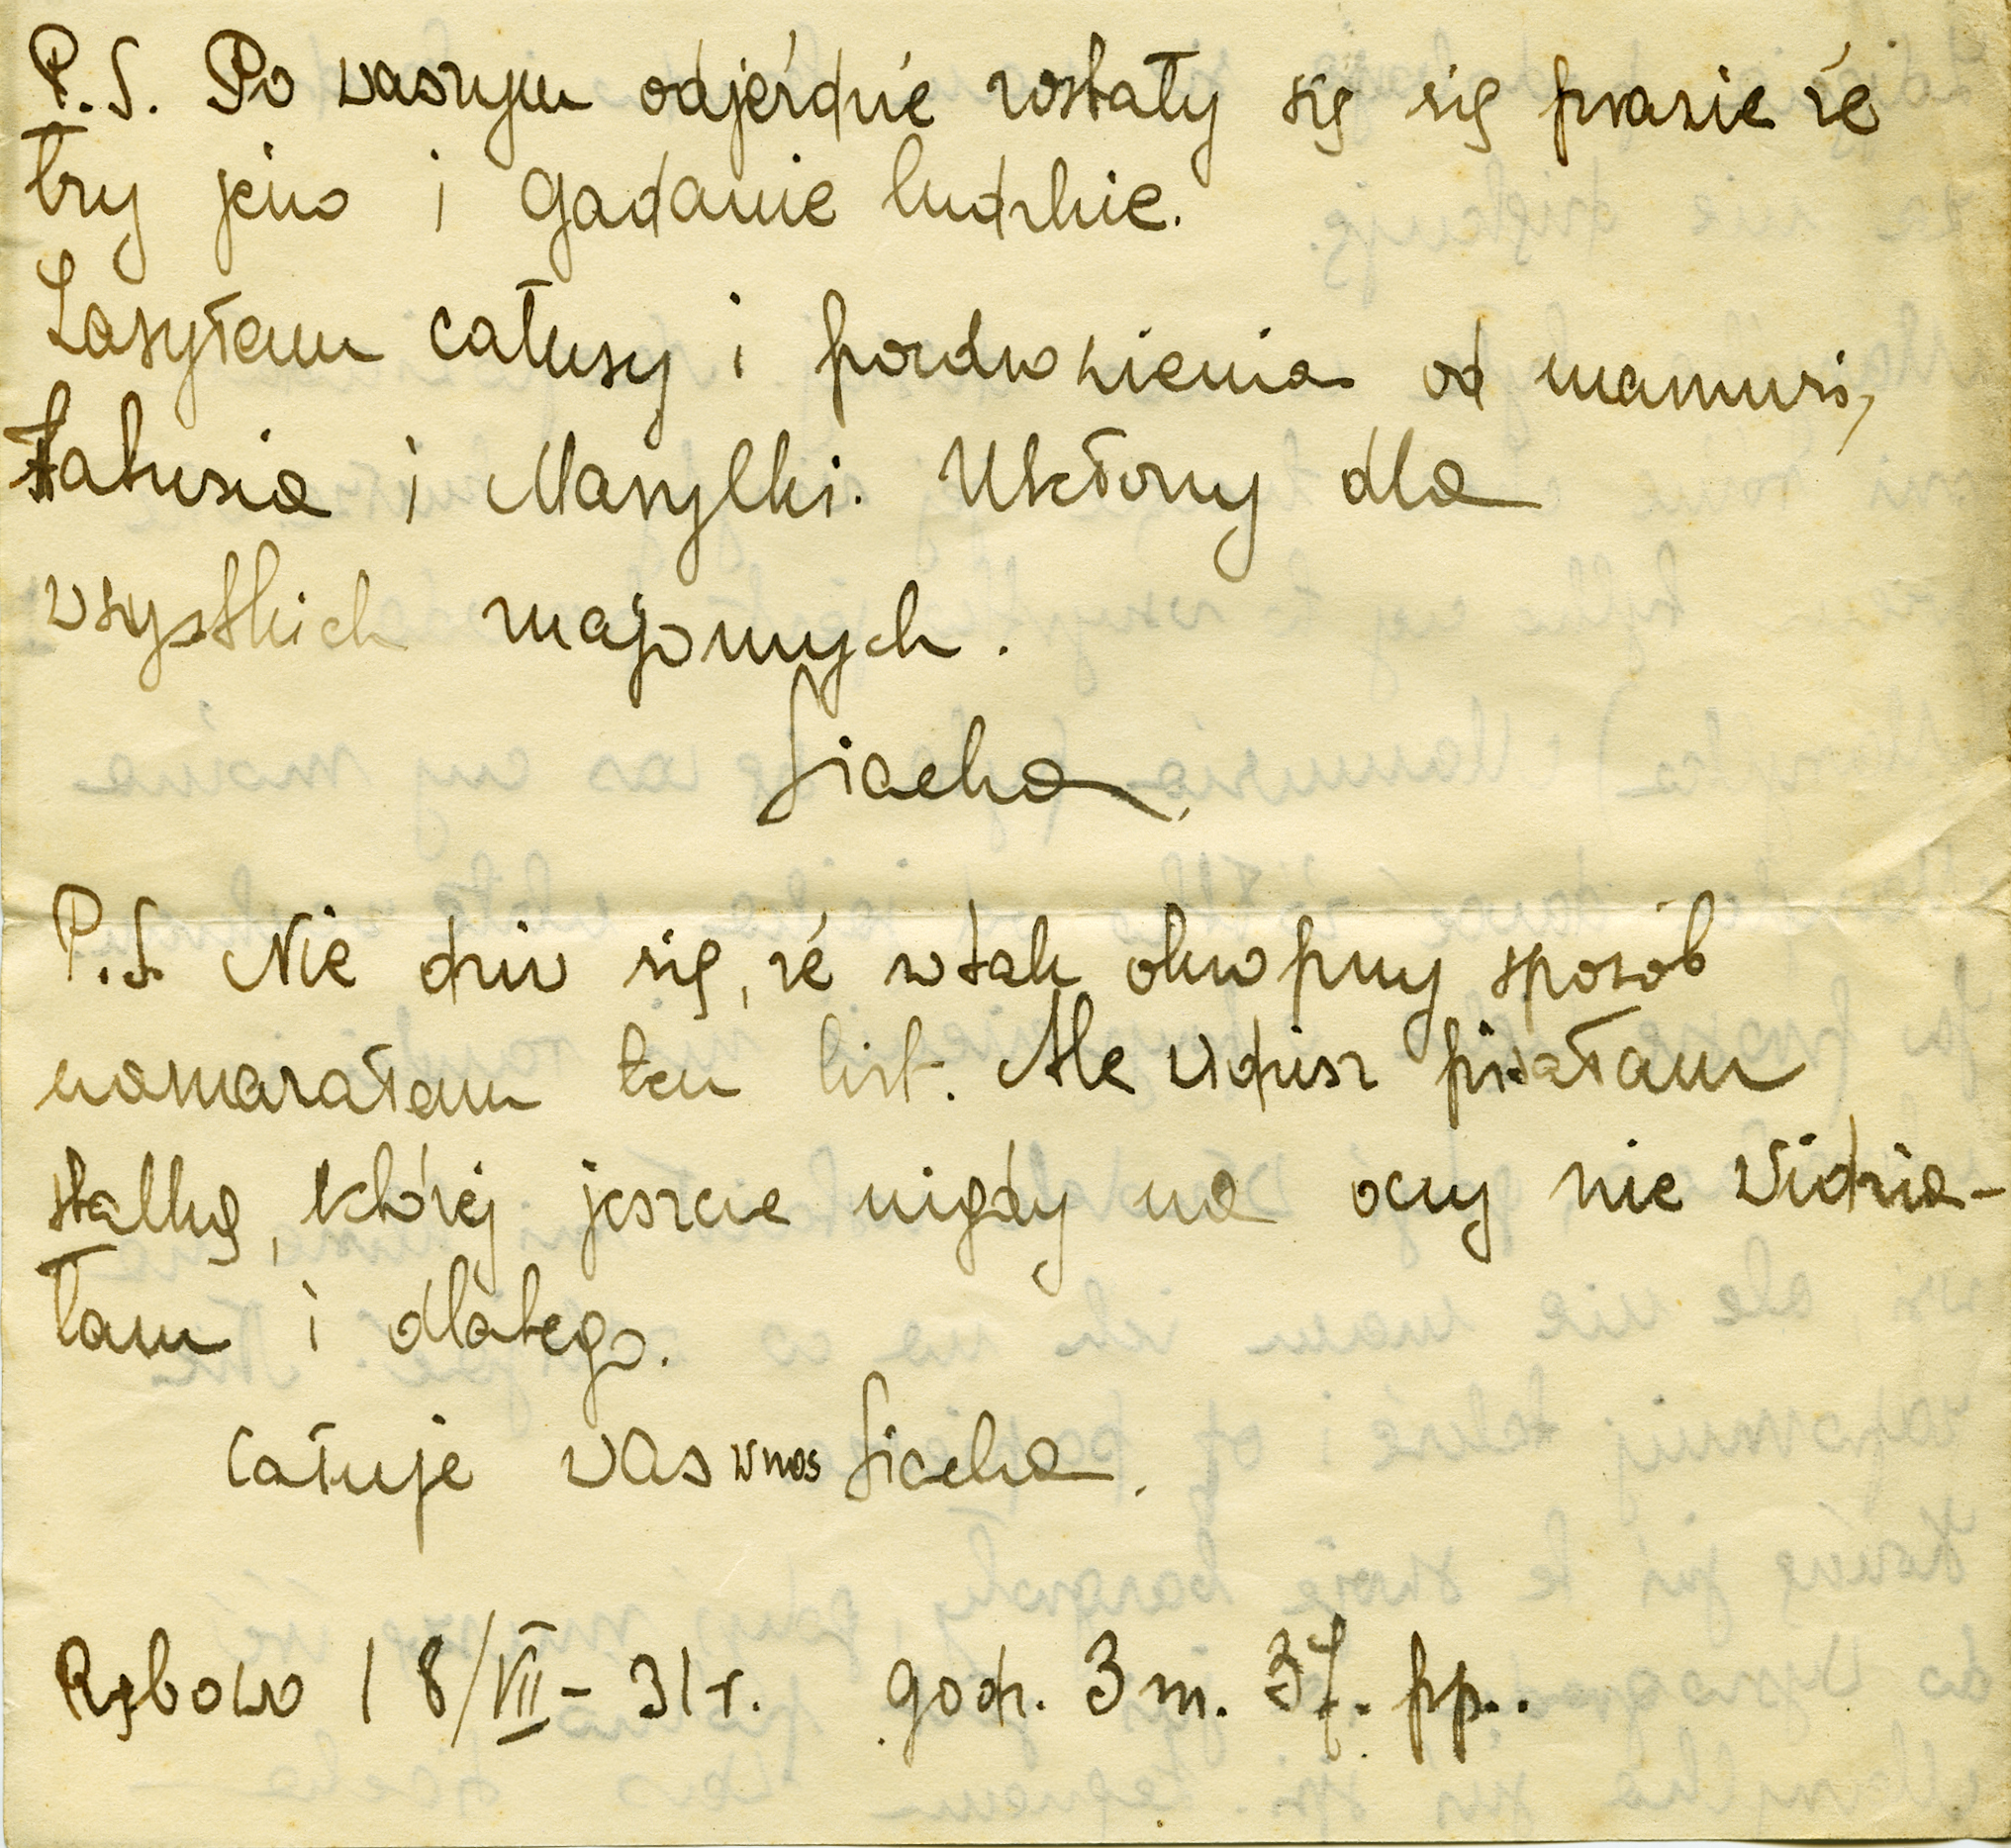 P.S. Po waszym odjeździe zostały się się prasie ze
łzy jeno i gadanie ludzkie.
Zasyłam całusy i pozdrowienia od mamusi,
tatusia i Marylki. Ukłony dla
wszystkich znajomych.
Siacha.
P.S. Nie dziw się, że w tak okropny sposób
namazałam ten list. Ale widzisz pisałam
stalką, której jeszcze nigdy na oczy nie widzia-
łam i dlatego.
Całuje was w nos Siacha.
Rębowo 18/VII - 31 r. godz. 3 m. 37. pp..